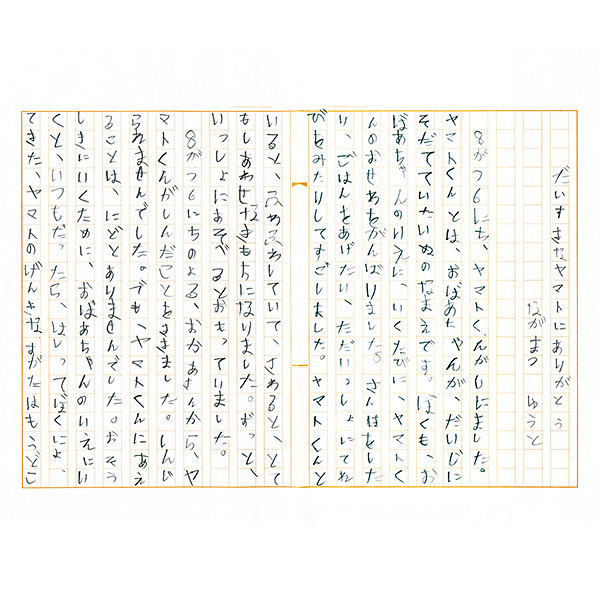 だいすきなヤマトにありがとう
ながまつ ゆうと
8がつ6にち、ヤマトくんがしにました。
ヤマトくんとは、おばあちゃんが、だいじに
そだてていたいぬのなまえです。ぼくも、お
ばあちゃんのいえに、いくたびに、ヤマトく
んのおせわをがんばりました。さんぽをした
り、ごはんをあげたり、ただいっしょにてれ
びをみたりしてすごしました。ヤマトくんと
いると、ふわふわしていて、さわると、とて
もしあわせなきもちになりました。ずっと、
いっしょにあそべるとおもっていました。
8がつ6にちのよる、おかあさんから、ヤ
マトくんがしんだことをききました。しんじ
られませんでした。でも、ヤマトくんにあえ
ることは、にどとありませんでした。おそう
しきにいくために、おばあちゃんのいえにい
くと、いつもだったら、はしってぼくによ、
てきた、ヤマトのげんきなすがたはもうどこ